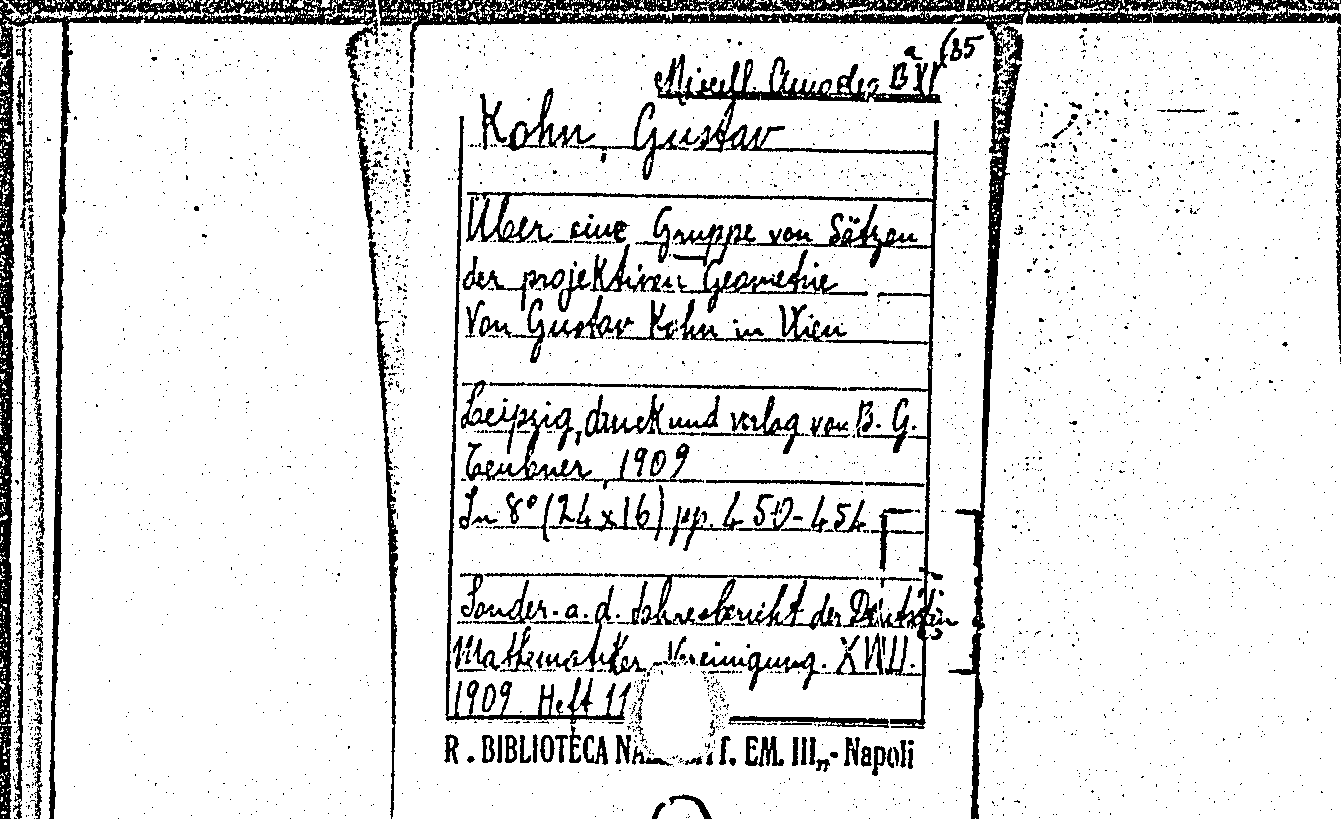 Miscell. Amodeo B XI a (85
Kohn, Gustav
Über eine Gruppe von Sätzen
der projektiven Geometrie
von Gustav Kohn in Wien
Leipzig, druck und verlag von B. G.
Teubner, 1909
In 8° (24 x 16) pp. 450-454
Sonder-a.d. Jahresbericht der Deutschen
Mathematiker Vereinigung. XVIII.
1909 Heft 11
R. BIBLIOTECA EM. III„- Napoli